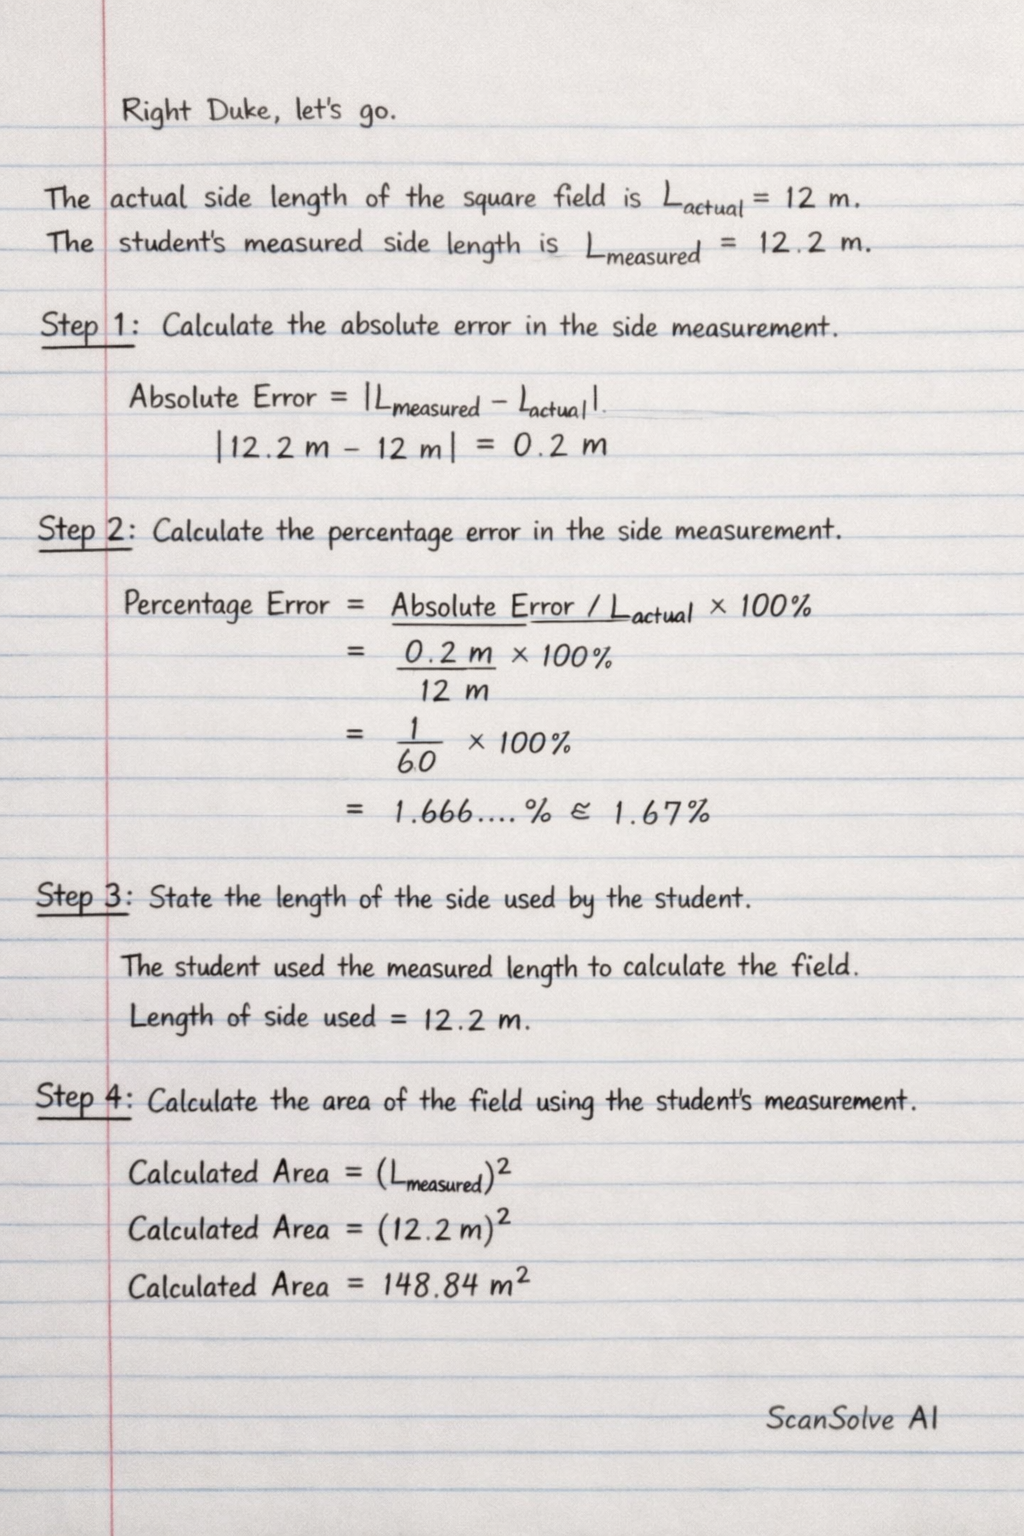 Right Duke, let's go.
The actual side length of the square field is L_actual = 12 m.
The student's measured side length is L_measured = 12.2 m.
Step 1: Calculate the absolute error in the side measurement.
Absolute Error = |L_measured − L_actual|.
|12.2 m − 12 m| = 0.2 m
Step 2: Calculate the percentage error in the side measurement.
Percentage Error = Absolute Error / L_actual × 100%
= 0.2 m / 12 m × 100%
= 1/60 × 100%
= 1.666....% ≈ 1.67%
Step 3: State the length of the side used by the student.
The student used the measured length to calculate the field.
Length of side used = 12.2 m.
Step 4: Calculate the area of the field using the student's measurement.
Calculated Area = (L_measured)²
Calculated Area = (12.2 m)²
Calculated Area = 148.84 m²
ScanSolve AI